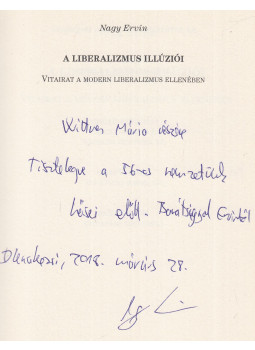 Nagy Ervin
A LIBERALIZMUS ILLÚZIÓI
VITAIRAT A MODERN LIBERALIZMUS ELLENÉBEN
Wittner Mária részére
Tisztelegve a 56-os nemzetünk
hősei előtt. Barátsággal Ervintől
2018. március 28.